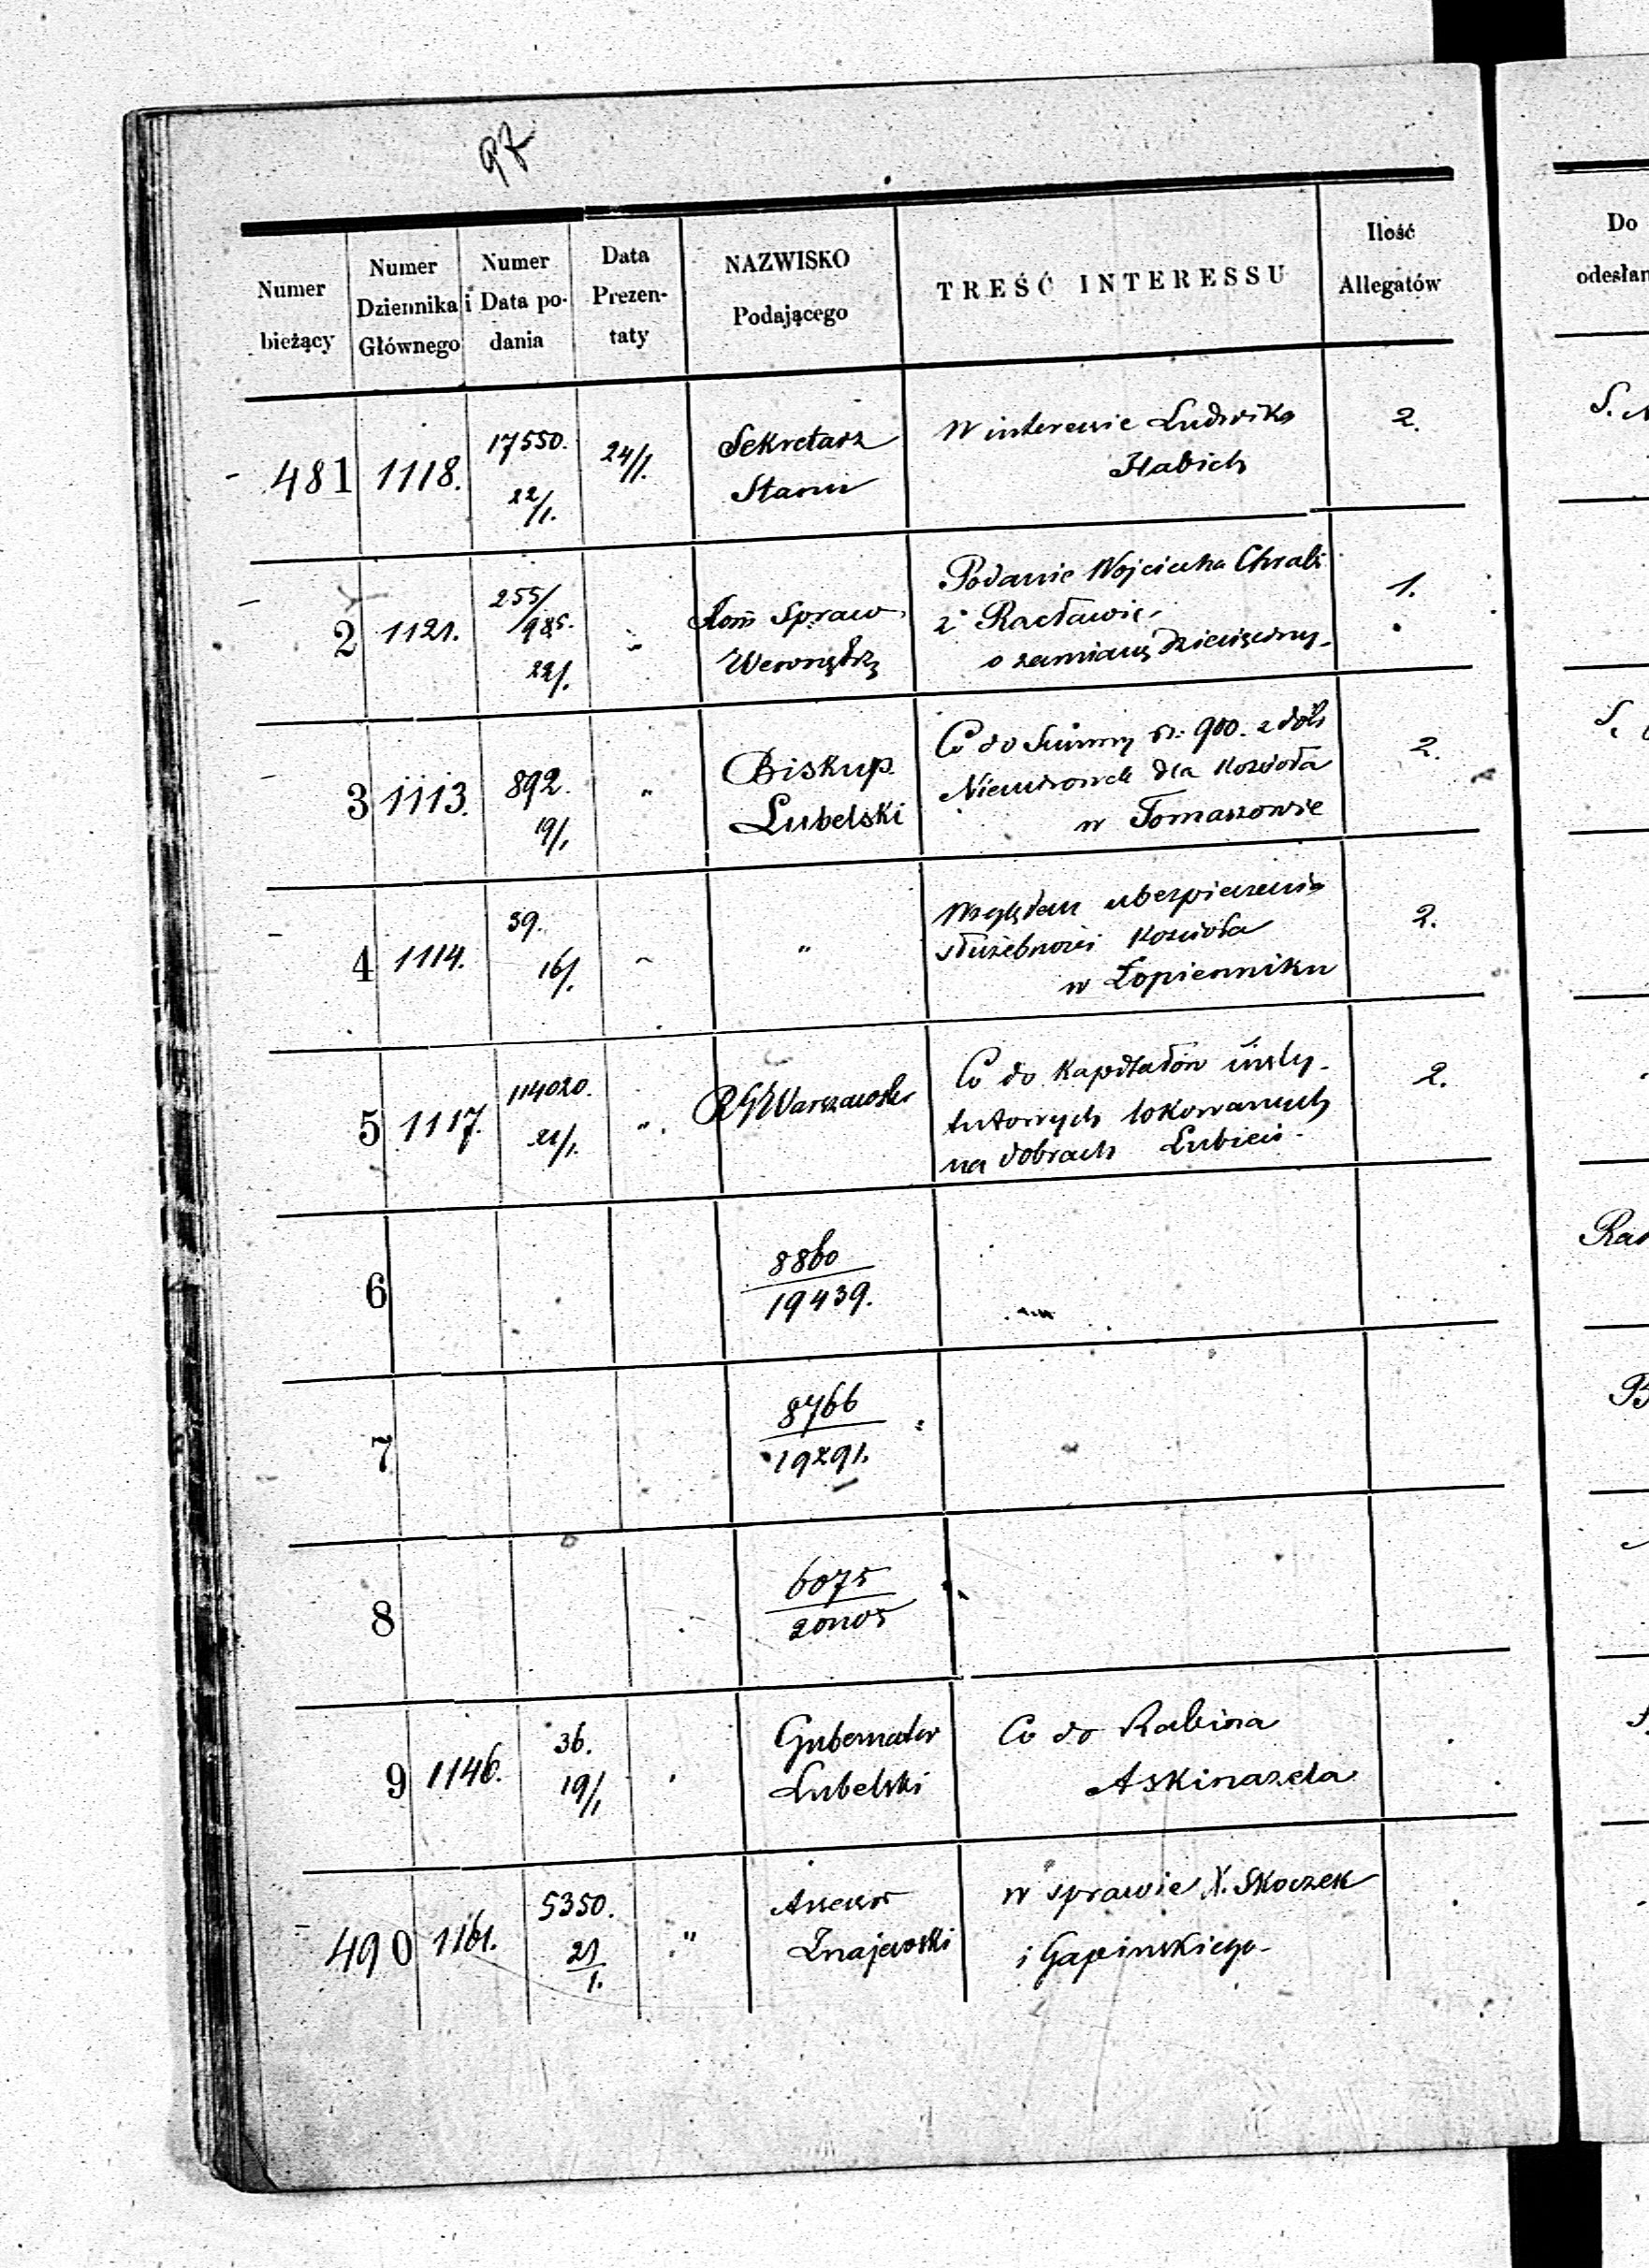 97
Numer bieżący
Numer Dziennika Głównego
Numer i Data podania
Data Prezentaty
NAZWISKO Podającego
TREŚĆ INTERESSU
Ilość Allegatów
Do
odesłan
481 1118. 17550. 22/1. 24/1. Sekretarz Stanu
W interesie Ludwika
Habich
2.
2 1121. 255/985. 22/1. " Kom Spraw Wewnętrz
Podanie Wojciecha Chrabi
z Racławic
o zamianę dziesięciny.
1.
3 1113. 892. 19/1. " Biskup Lubelski
Co do Summy rs. 900. z dóbr
dla Kościoła
w Tomaszowie
2.
4 1114. 39. 16/1. " "
Względem ubezpieczenia
służebności Kościoła
w Łopienniku
2.
5 1117. 114020. 21/1. " RGWarszawski
Co do Kapitałów insty-
tutowych lokowanych
na dobrach Lubień.
2.
6 8860
19439.
7 8766
19291.
8 6075
9 1146. 36. 19/1 " Gubernator Lubelski
Co do Rabina
Askinazela
490 1161. 5350. 21/1. " Znajewski
W sprawie X. Skoczek
i Gapinskiego.